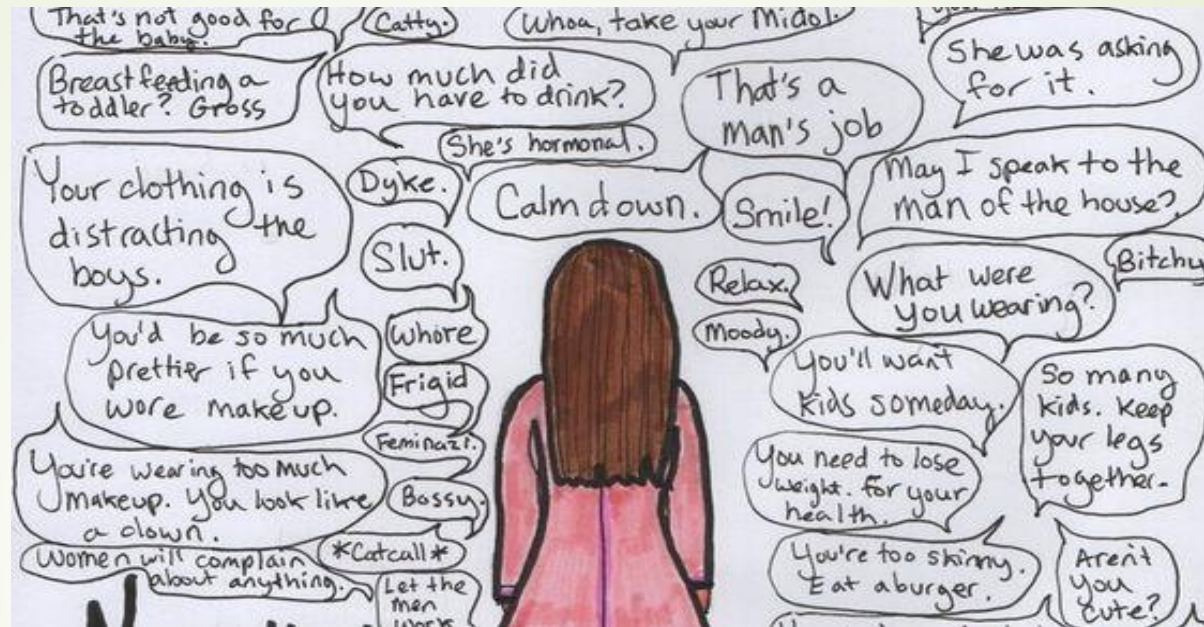 That's not good for
the baby.
Catty.
Whoa, take your Midol.
She was asking
for it.
Breastfeeding a
toddler? Gross
How much did
you have to drink?
That's a
man's job
She's hormonal.
Your clothing is
distracting the
boys.
Dyke.
Calm down.
Smile!
May I speak to the
man of the house?
Slut.
Relax.
What were
you wearing?
Bitchy
You'd be so much
prettier if you
wore makeup.
Whore
Moody.
You'll want
kids someday.
So many
kids. Keep
your legs
together.
Frigid
Feminazi.
You're wearing too much
makeup. You look like
a clown.
Bossy.
You need to lose
weight. For your
health.
Women will complain
about anything.
*Catcall*
You're too skinny.
Eat a burger.
Aren't
you
cute?
Let the
men
work